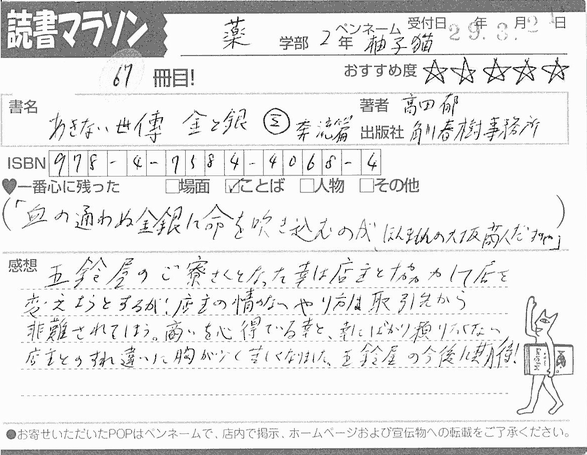 読書マラソン
薬 学部 2年 ペンネーム 柚子猫 受付日 29年3月21日
67 冊目!
おすすめ度 ☆☆☆☆☆
書名 あきない世傳 金と銀 ③ 奔流篇
著者 高田郁
出版社 角川春樹事務所
ISBN 978-4-7584-4068-4
♥一番心に残った □場面 ☑ことば □人物 □その他
(「血の通わぬ金銀に命を吹き込むのが、ほんまもんの大坂商人だすやろ」)
感想 五鈴屋のご寮さんとなった幸は店主と協力して店を
変えようとするが、店主の情がないやり方は取引先から
非難されてしまう。商いを心得ている幸と、幸にばかり頼りたくない
店主とのすれ違いに胸がつく苦しくなりました。五鈴屋の今後に期待!
●お寄せいただいたPOPはペンネームで、店内で掲示、ホームページおよび宣伝物への転載をご了承ください。